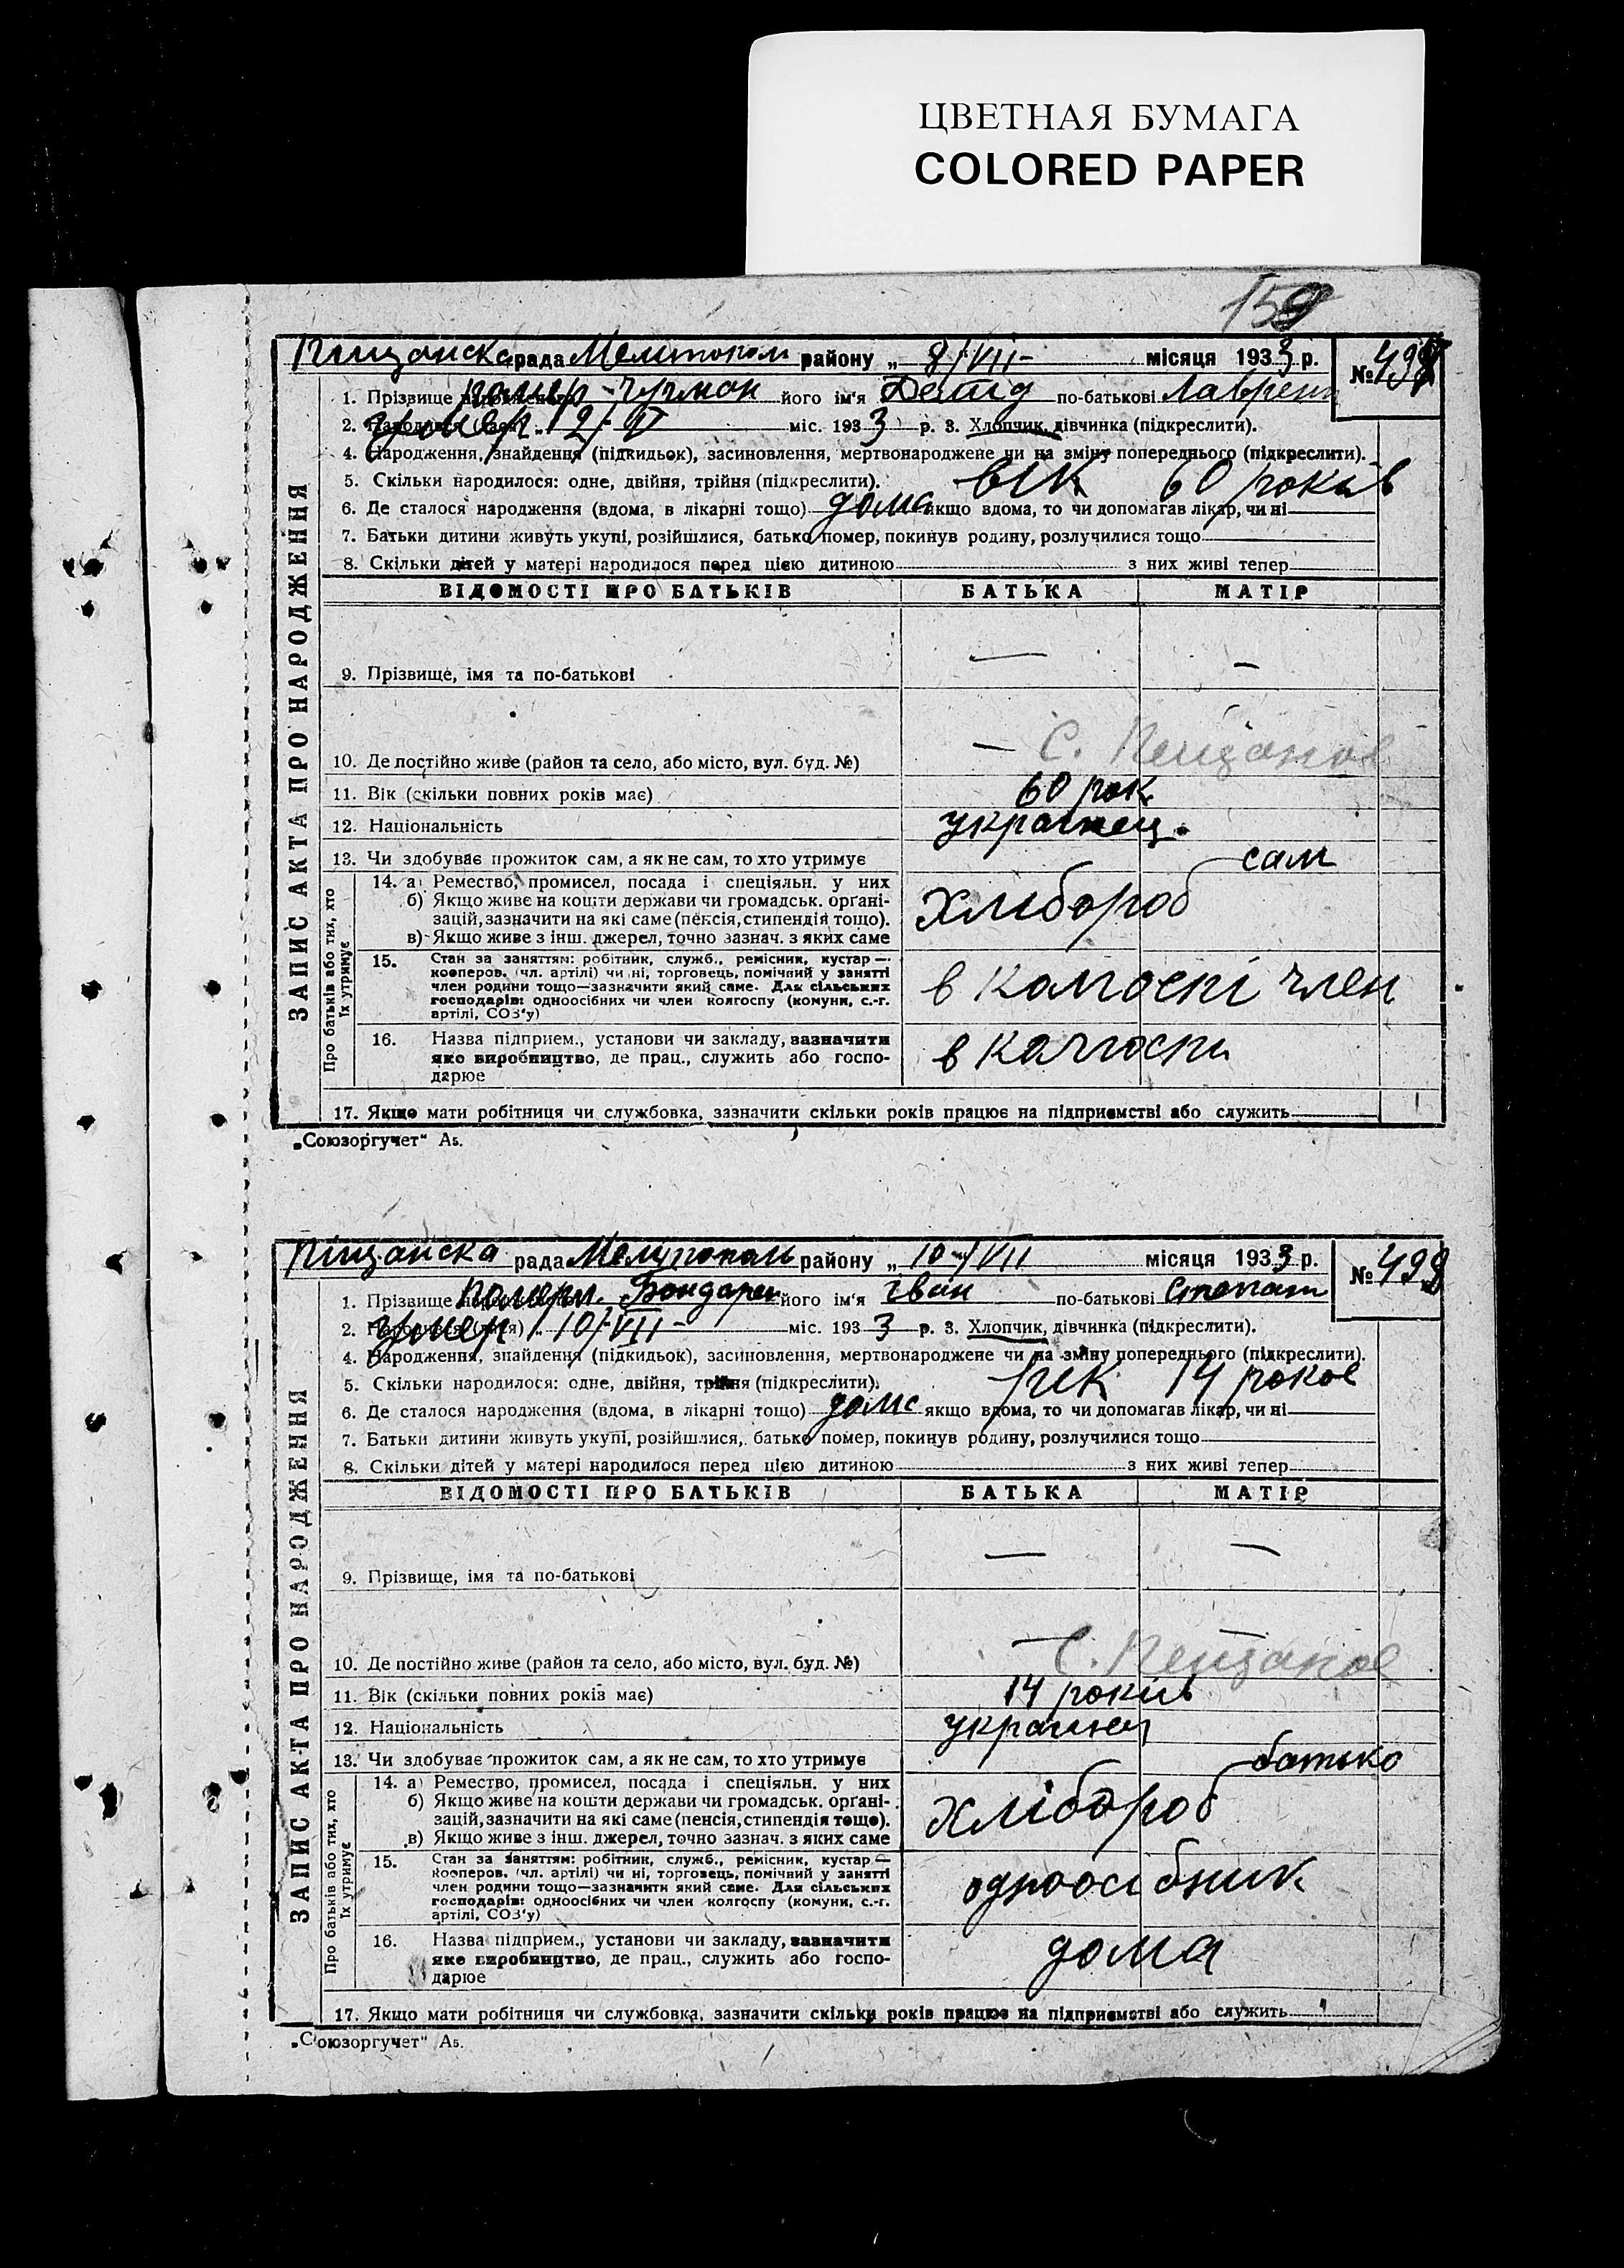 ЦВЕТНАЯ БУМАГА
COLORED PAPER
159
Піщанска рада Мелитополь району „ 8/VII- місяця 1933 р. №498
1. Прізвище помер Чугмон його ім'я Демид по-батькові Лаврент
2. умер 2/V міс. 1933 р. 3. Хлопчик, дівчинка (підкреслити).
4. Народження, знайдення (підкидьок), засиновлення, мертвонароджене чи на зміну попереднього (підкреслити).
5. Скільки народилося: одне, двійня, трійня (підкреслити). вік 60 років
6. Де сталося народження (вдома, в лікарні тощо) дома якщо вдома, то чи допомагав лікар, чи ні
7. Батьки дитини живуть укупі, розійшлися, батько помер, покинув родину, розлучилися тощо
8. Скільки дітей у матері народилося перед цією дитиною з них живі тепер
ВІДОМОСТІ ПРО БАТЬКІВ БАТЬКА МАТІР
9. Прізвище, імя та по-батькові — —
10. Де постійно живе (район та село, або місто, вул. буд. №) — С. Пещаное
11. Вік (скільки повних років має) 60 рок
12. Національність украінец.
13. Чи здобуває прожиток сам, а як не сам, то хто утримує сам
14. а) Ремество, промисел, посада і спеціяльн. у них
б) Якщо живе на кошти держави чи громадськ. органі-
зацій, зазначити на які саме (пенсія, стипендія тощо).
в) Якщо живе з інш. джерел, точно зазнач. з яких саме
хлібороб
15. Стан за заняттям: робітник, служб., ремісник, кустар —
кооперов. (чл. артілі) чи ні, торговець, помічний у занятті
член родини тощо—зазначити який саме. Для сільських
господарів: одноосібних чи член колгоспу (комуни, с.-г.
артілі, СОЗ'у)
в колгоспі член
16. Назва підприєм., установи чи закладу, зазначити
яке виробництво, де прац., служить або госпо-
дарює
в колгоспи
17. Якщо мати робітниця чи службовка, зазначити скільки років працює на підприємстві або служить
ЗАПИС АКТА ПРО НАРОДЖЕННЯ
Про батьків або тих, хто їх утримує
„Союзоргучет" А5.
Піщанска рада Мелитополь району „ 10/VII місяця 1933 р. №499
1. Прізвище помер. Бондарен його ім'я Іван по-батькові Степан
2. умер 10/VII- міс. 1933 р. 3. Хлопчик, дівчинка (підкреслити).
4. Народження, знайдення (підкидьок), засиновлення, мертвонароджене чи на зміну попереднього (підкреслити).
5. Скільки народилося: одне, двійня, трійня (підкреслити). 14 роков
6. Де сталося народження (вдома, в лікарні тощо) дома якщо вдома, то чи допомагав лікар, чи ні
7. Батьки дитини живуть укупі, розійшлися, батько помер, покинув родину, розлучилися тощо
8. Скільки дітей у матері народилося перед цією дитиною з них живі тепер
ВІДОМОСТІ ПРО БАТЬКІВ БАТЬКА МАТІР
9. Прізвище, імя та по-батькові — —
10. Де постійно живе (район та село, або місто, вул. буд. №) — С. Пещаное
11. Вік (скільки повних років має) 14 років
12. Національність украінец
13. Чи здобуває прожиток сам, а як не сам, то хто утримує батько
14. а) Ремество, промисел, посада і спеціяльн. у них
б) Якщо живе на кошти держави чи громадськ. органі-
зацій, зазначити на які саме (пенсія, стипендія тощо).
в) Якщо живе з інш. джерел, точно зазнач. з яких саме
хлібороб
15. Стан за заняттям: робітник, служб., ремісник, кустар —
кооперов. (чл. артілі) чи ні, торговець, помічний у занятті
член родини тощо—зазначити який саме. Для сільських
господарів: одноосібних чи член колгоспу (комуни, с.-г.
артілі, СОЗ'у)
одноосібник
16. Назва підприєм., установи чи закладу, зазначити
яке виробництво, де прац., служить або госпо-
дарює
дома
17. Якщо мати робітниця чи службовка, зазначити скільки років працює на підприємстві або служить
ЗАПИС АКТА ПРО НАРОДЖЕННЯ
Про батьків або тих, хто їх утримує
„Союзоргучет" А5.